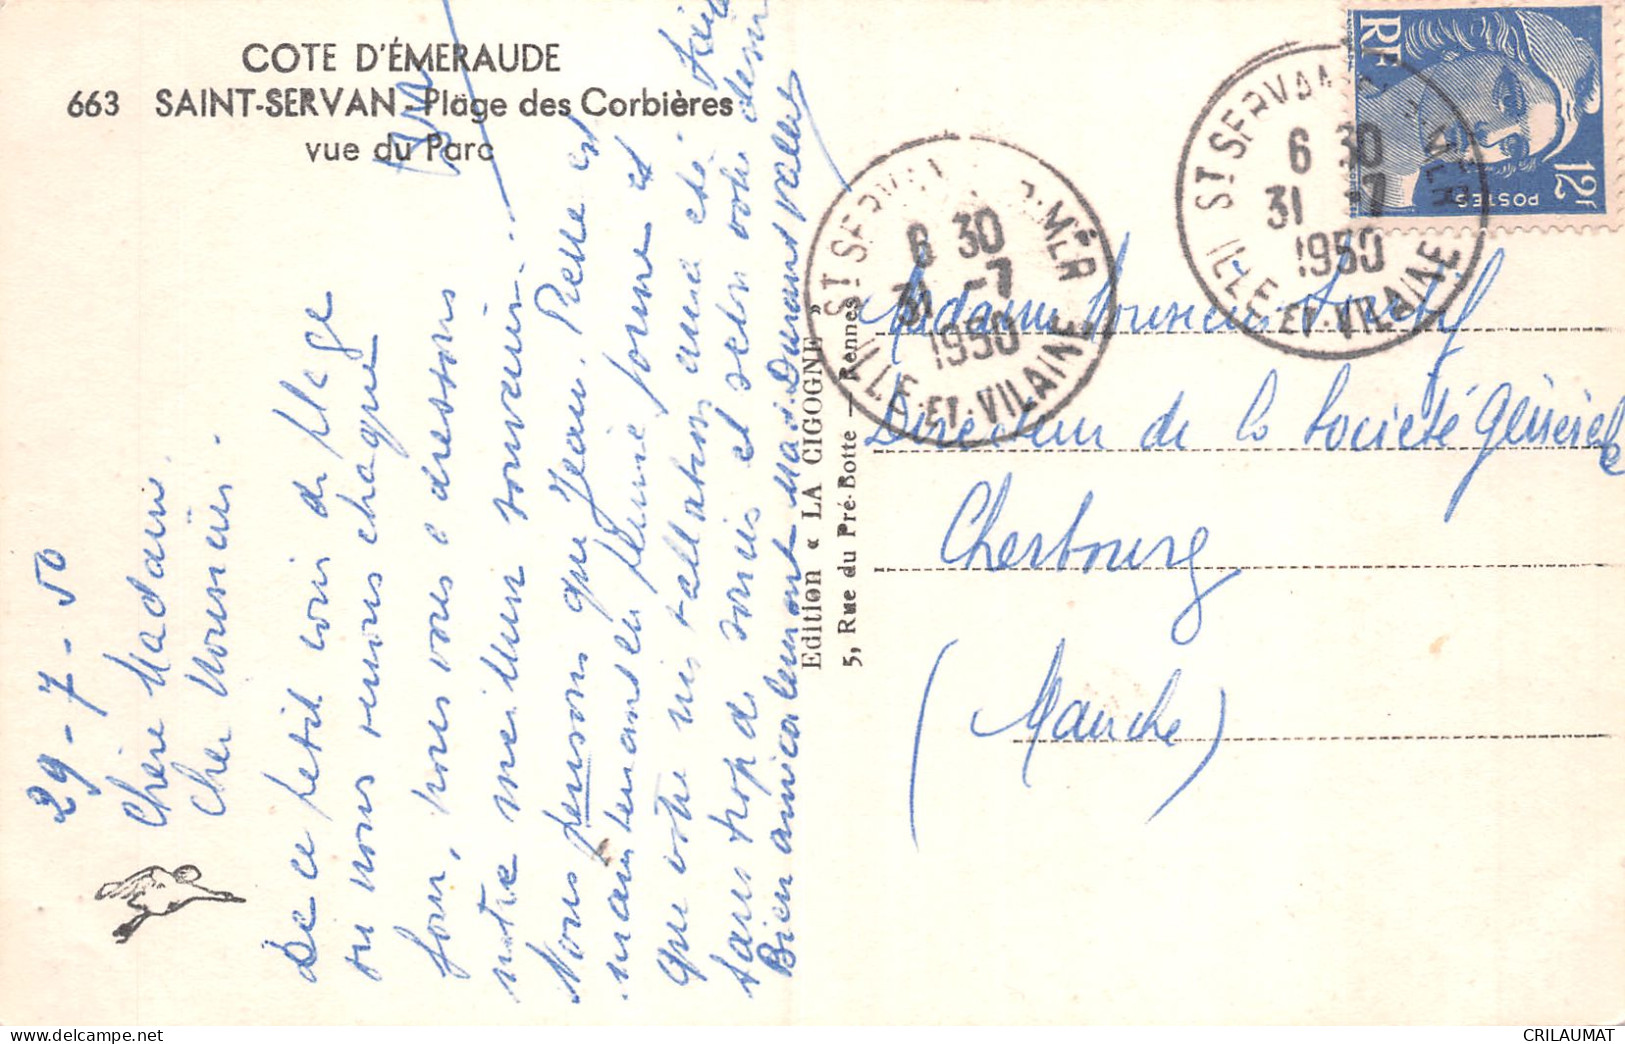 COTE D'ÉMERAUDE
663 SAINT-SERVAN - Plage des Corbières
vue du Parc
29-7-50
Chère Madame
Cher Monsieur.
De ce petit coin de plage
où nous venons chaque
jour, nous vous adressons
notre meilleur souvenir.
Nous pensons que Jean-Pierre est
maintenant en pleine forme et
que votre installation aura été faite
sans trop de soucis et selon votre désir
Bien amicalement
Edition « LA CIGOGNE »
5, Rue du Pré-Botte — Rennes
ST SERVAN S-MER
6 30
31 -7
1950
ILLE-ET-VILAINE
ST SERVAN S-MER
6 30
31 -7
1950
ILLE-ET-VILAINE
RF
POSTES
12F
Madame Monsieur
Directeur de la Société Générale
Cherbourg
(Manche)
CRILAUMAT